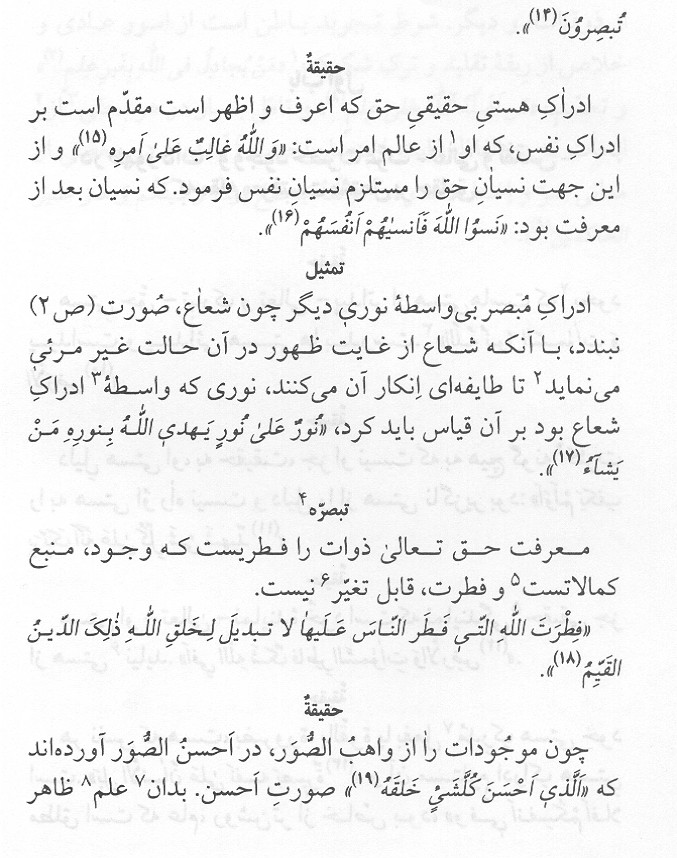 تُبصِرُونَ(۱۴)».
حقیقةٌ
ادراکِ هستیِ حقیقیِ حق که اعرف و اظهر است مقدّم است بر
ادراک نفس، که او۱ از عالم امر است: «وَ اللّٰهُ غالِبٌ عَلیٰ اَمرِه(۱۵)» و از
این جهت نسیانِ حق را مستلزم نسیانِ نفس فرمود. که نسیان بعد از
معرفت بود: «نَسوُا اللّٰهَ فَاَنسیٰهُمْ اَنْفُسَهُمْ(۱۶)».
تمثیل
ادراکِ مُبصر بی‌واسطهٔ نوریِ دیگر چون شعاع، صُورت (ص ۲)
نبندد، بـا آنکـه شعـاع از غـایت ظهـور در آن حـالت غیـر مـرئی
می‌نماید۲ تا طایفه‌ای اِنکار آن می‌کنند، نوری که واسطهٔ۳ ادراکِ
شعاع بود بر آن قیاس باید کرد، «نُورٌ عَلیٰ نُورٍ یَـهدیِ اللّٰـهُ بِـنورِهِ مَـنْ
یَشآءُ(۱۷)».
تبصرّه۴
مـعرفت حـق تـعالیٰ ذوات را فـطریست کـه وجـود، مـنبع
کمالاتست۵ و فطرت، قابل تغیّر۶ نیست.
«فِطْرَتَ اللّٰهِ التّـیِ فَـطَر النّـاسَ عَـلَیهٰا لا تـبدیلَ لِـخَلقِ اللّٰـهِ ذٰلِکَ الدّیـنُ
القَیِّمُ(۱۸)».
حقیقةٌ
چون موجُودات را از واهبُ الصُّوَر، در اَحسنُ الصُّوَر آورده‌اند
که «اَلَّذیِ اَحسَنَ کُلَّشَیٍْ خَلقَهُ(۱۹)» صورتِ اَحسن. بدان۷ علم۸ ظاهر